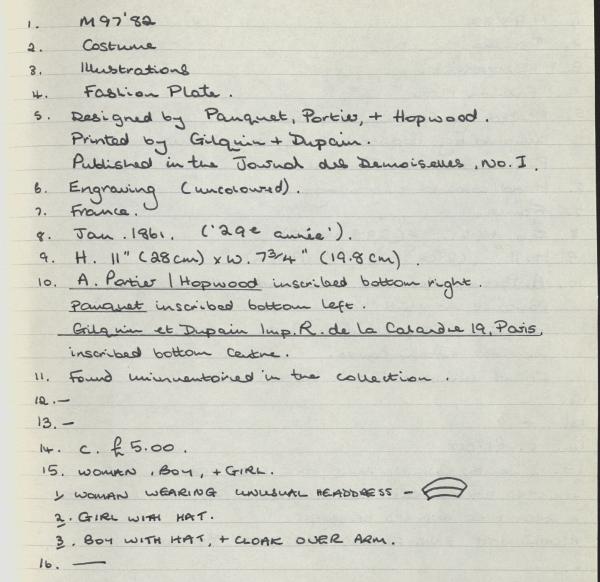 1. M97'82
2. Costume
3. Illustrations
4. Fashion Plate.
5. Designed by Pauquet, Portier, + Hopwood.
Printed by Gilquin + Dupain.
Published in the Journal des Demoiselles, No. I.
6. Engraving (uncoloured).
7. France.
8. Jan. 1861. ('29e année').
9. H. 11" (28cm) x W. 7 3/4" (19.8cm).
10. A. Portier / Hopwood inscribed bottom right.
Pauquet inscribed bottom left.
Gilquin et Dupain Imp. R. de la Calandre 19, Paris,
inscribed bottom centre.
11. Found uninventoried in the collection.
12. –
13. –
14. c. £5.00.
15. WOMAN, BOY, + GIRL.
1, WOMAN WEARING UNUSUAL HEADDRESS –
2. GIRL WITH HAT.
3. BOY WITH HAT, + CLOAK OVER ARM.
16. —